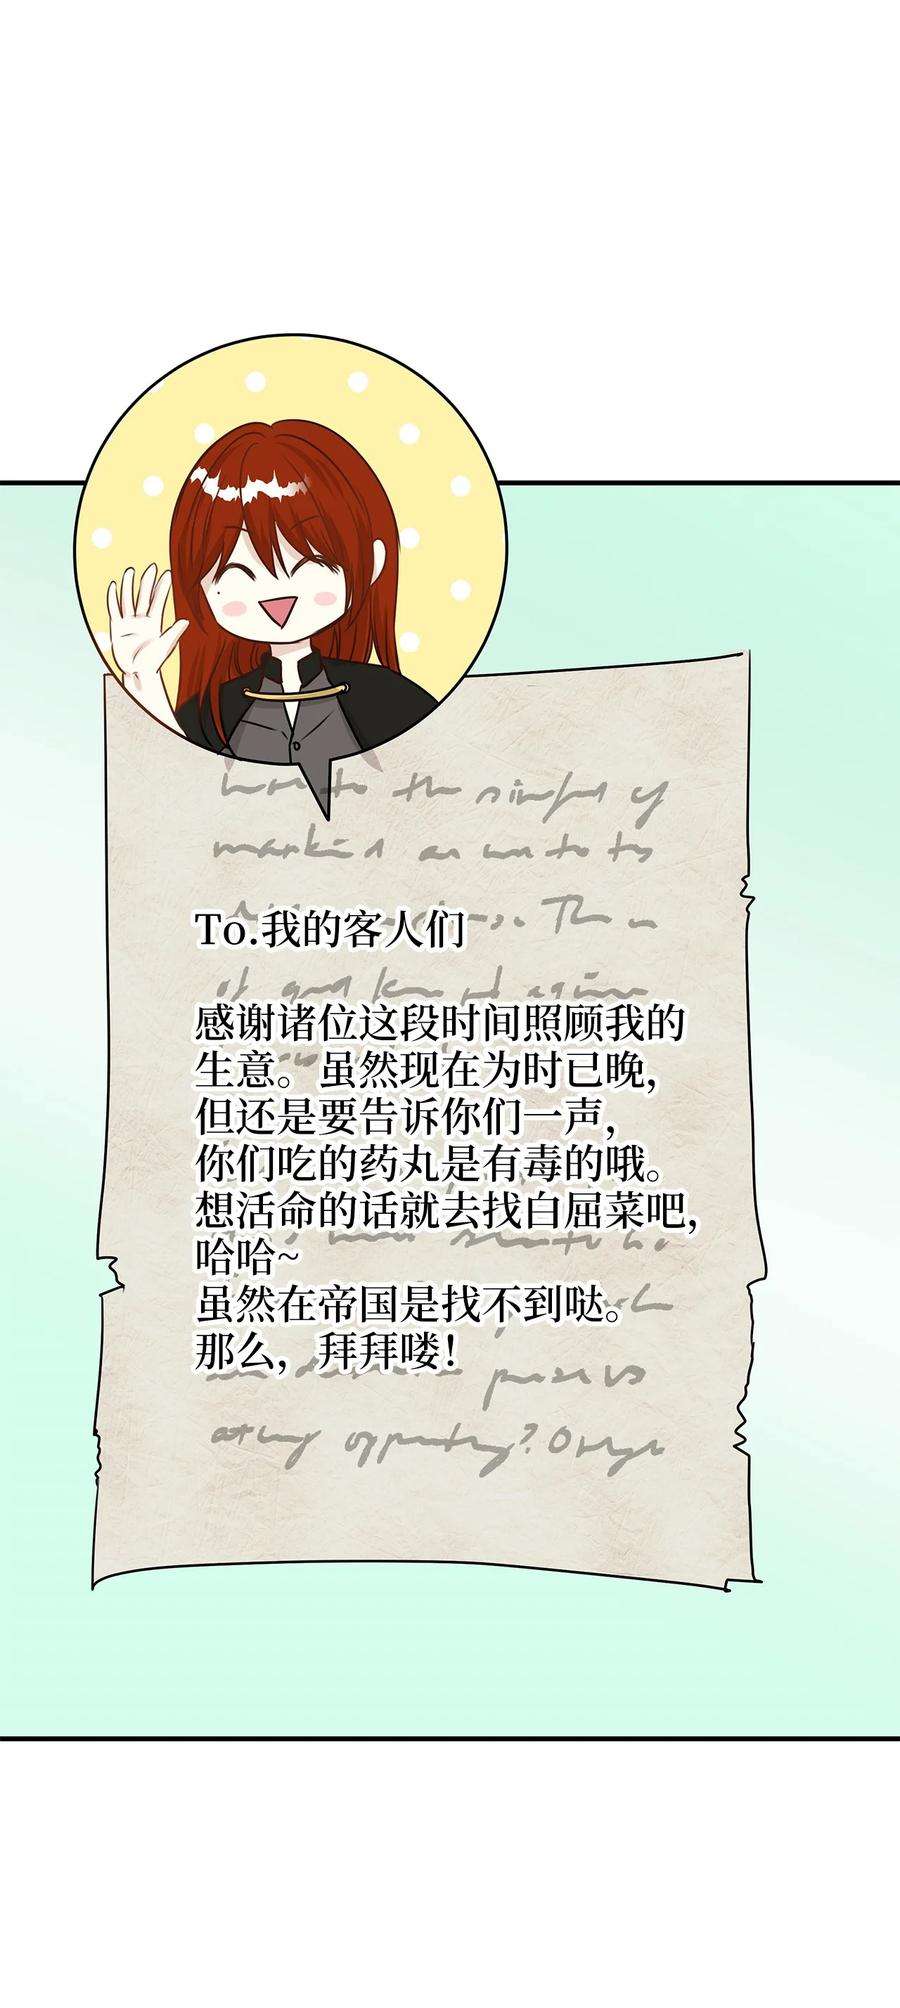 To.我的客人们
感谢诸位这段时间照顾我的
生意。虽然现在为时已晚,
但还是要告诉你们一声,
你们吃的药丸是有毒的哦。
想活命的话就去找白屈菜吧,
哈哈~
虽然在帝国是找不到哒。
那么，拜拜喽！